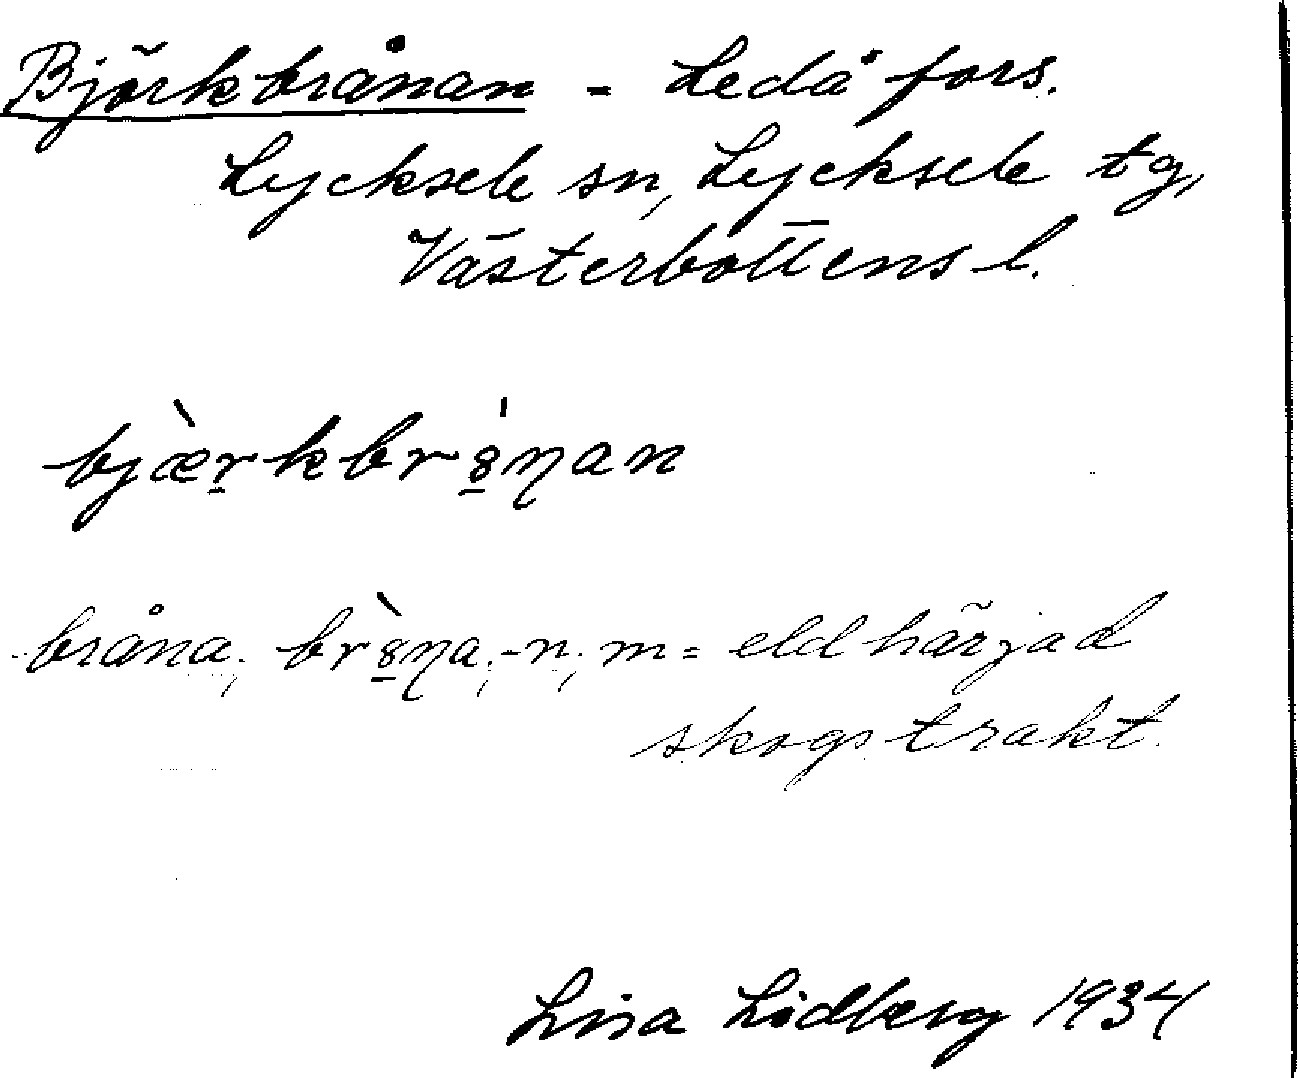 Björkbrånan - Ledåfors.
Lycksele sn, Lycksele tg,
Västerbottens l.
bjæ̀r̠kbrȣ̠́ŋan
bråna, brȣ̠̀ŋa, -n, m = eldhärjad
skogstrakt.
Lisa Lidberg 1934